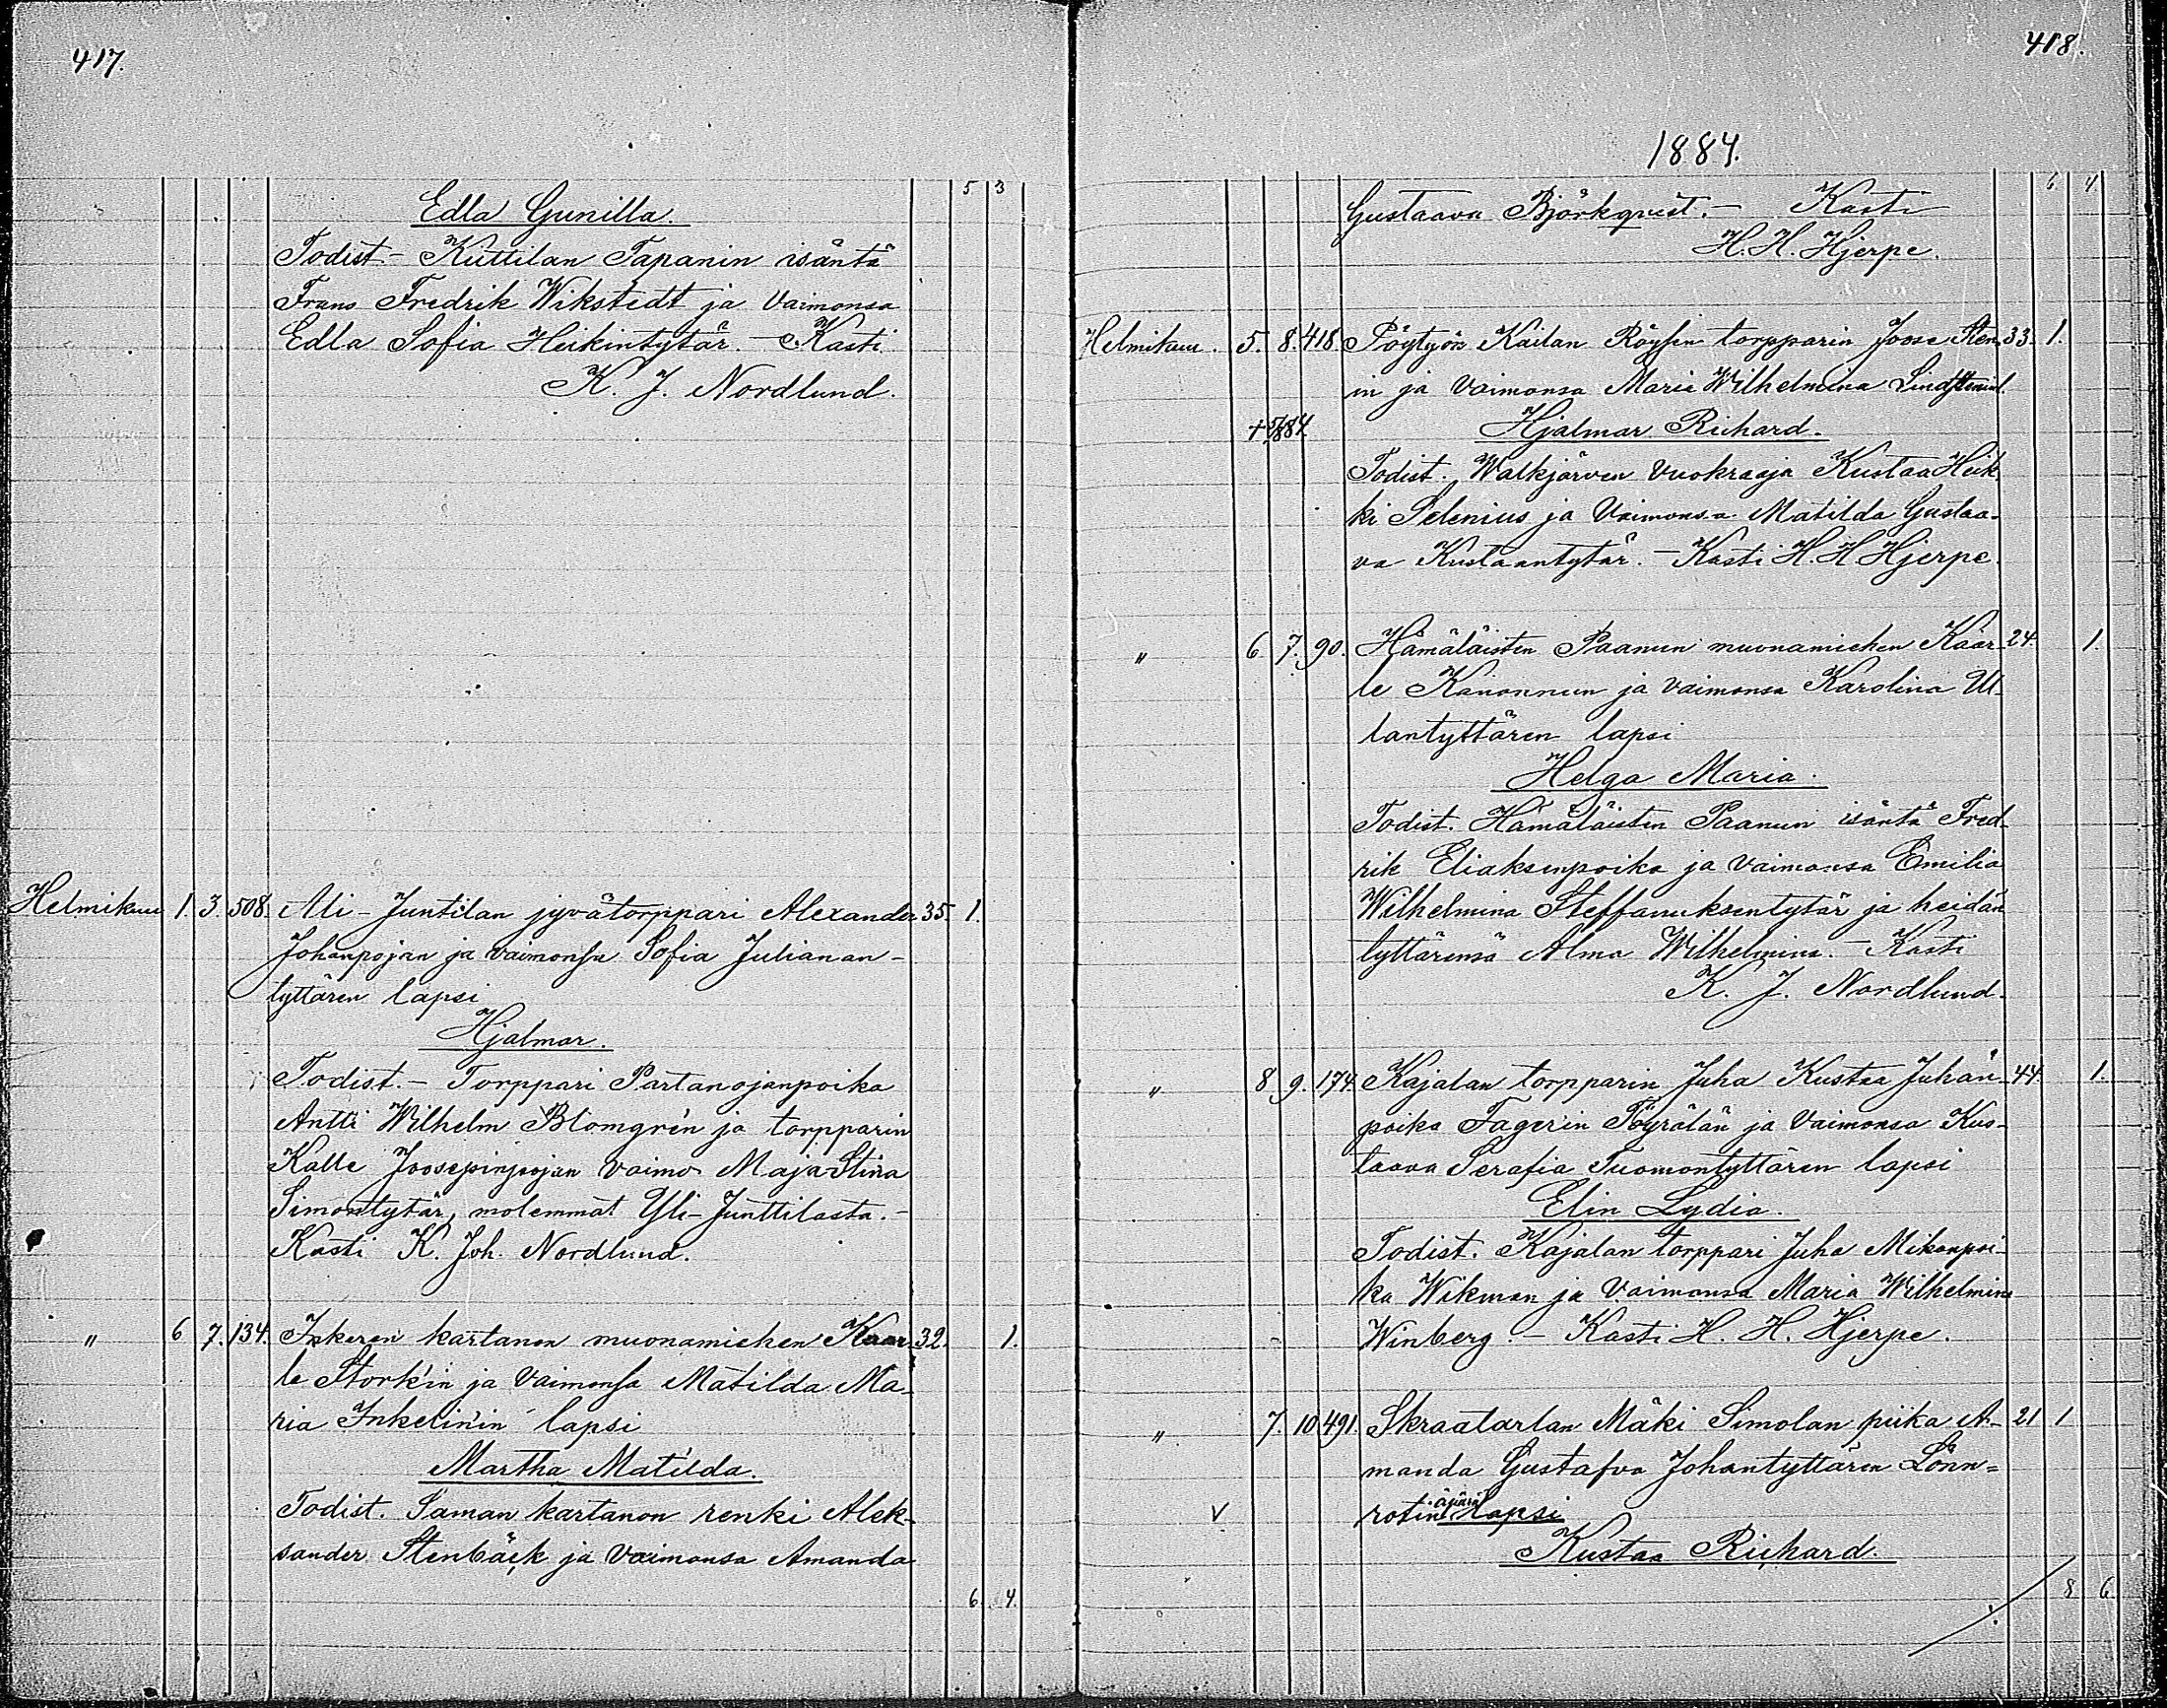 417.
5 3
Edla Gunilla.
Todist. - Kuttilan Tapanin isäntä
Frans Fredrik Wikstedt ja vaimonsa
Edla Sofia Heikintytär. - Kasti
K. J. Nordlund.
Helmikuu 1. 3. 508. Ali-Juntilan jyvätorppari Alexander 35. 1.
Johanpojan ja vaimonsa Sofia Julianan-
tyttären lapsi
Hjalmar.
Todist. - Torppari Partanojanpoika
Antti Wilhelm Blomgrén ja torpparin
Kalle Joosepinpojan vaimo Maja Stina
Simontytär, molemmat Yli-Junttilasta. -
Kasti K. Joh. Nordlund.
" 6 7. 134. Inkeren kartanon muonamiehen Kaar- 32. 1.
le Stork'in ja vaimonsa Matilda Ma-
ria Inkelin'in lapsi
Martha Matilda.
Todist. Saman kartanon renki Alek-
sander Stenbäck ja vaimonsa Amanda
6. 4.
418.
1884.
6 4
Gustaava Björkqvist. - Kasti
H. H. Hjerpe.
Helmikuu. 5. 8. 418. Pöytyön Kailan Röysin torpparin Joose Sten- 33. 1.
in ja vaimonsa Maria Wilhelmina
Hjalmar Richard.
Todist. Walkjärven vuokraaja Kustaa Heik-
ki Selenius ja vaimonsa Matilda Gustaa-
va Kustaantytär. - Kasti H. H Hjerpe.
" 6. 7. 90. Hämäläisten Paanun muonamiehen Kaar- 24. 1.
le ja vaimonsa Karolina Ul-
lantyttären lapsi
Helga Maria.
Todist. Hämäläisten Paanun isäntä Fred-
rik Eliaksenpoika ja vaimonsa Emilia
Wilhelmina Steffanuksentytär ja heidän
tyttärensä Alma Wilhelmina. - Kasti
K. J. Nordlund.
" 8 9. 174. Kajalan torpparin Juha Kustaa Juhan- 44. 1.
poika Fager'in Töyrälän ja vaimonsa Kus-
taava Serafia Tuomontyttären lapsi
Elin Lydia.
Todist. Kajalan torppari Juha Mikonpoi-
ka Wikman ja vaimonsa Maria Wilhelmina
Winberg. - Kasti H. H. Hjerpe.
" 7. 10 491. Skraatarlan Mäki Simolan piika A- 21 1
manda Gustafva Johantyttären Lönn=
V rotin äpärä lapsi
Kustaa Richard.
8. 6.